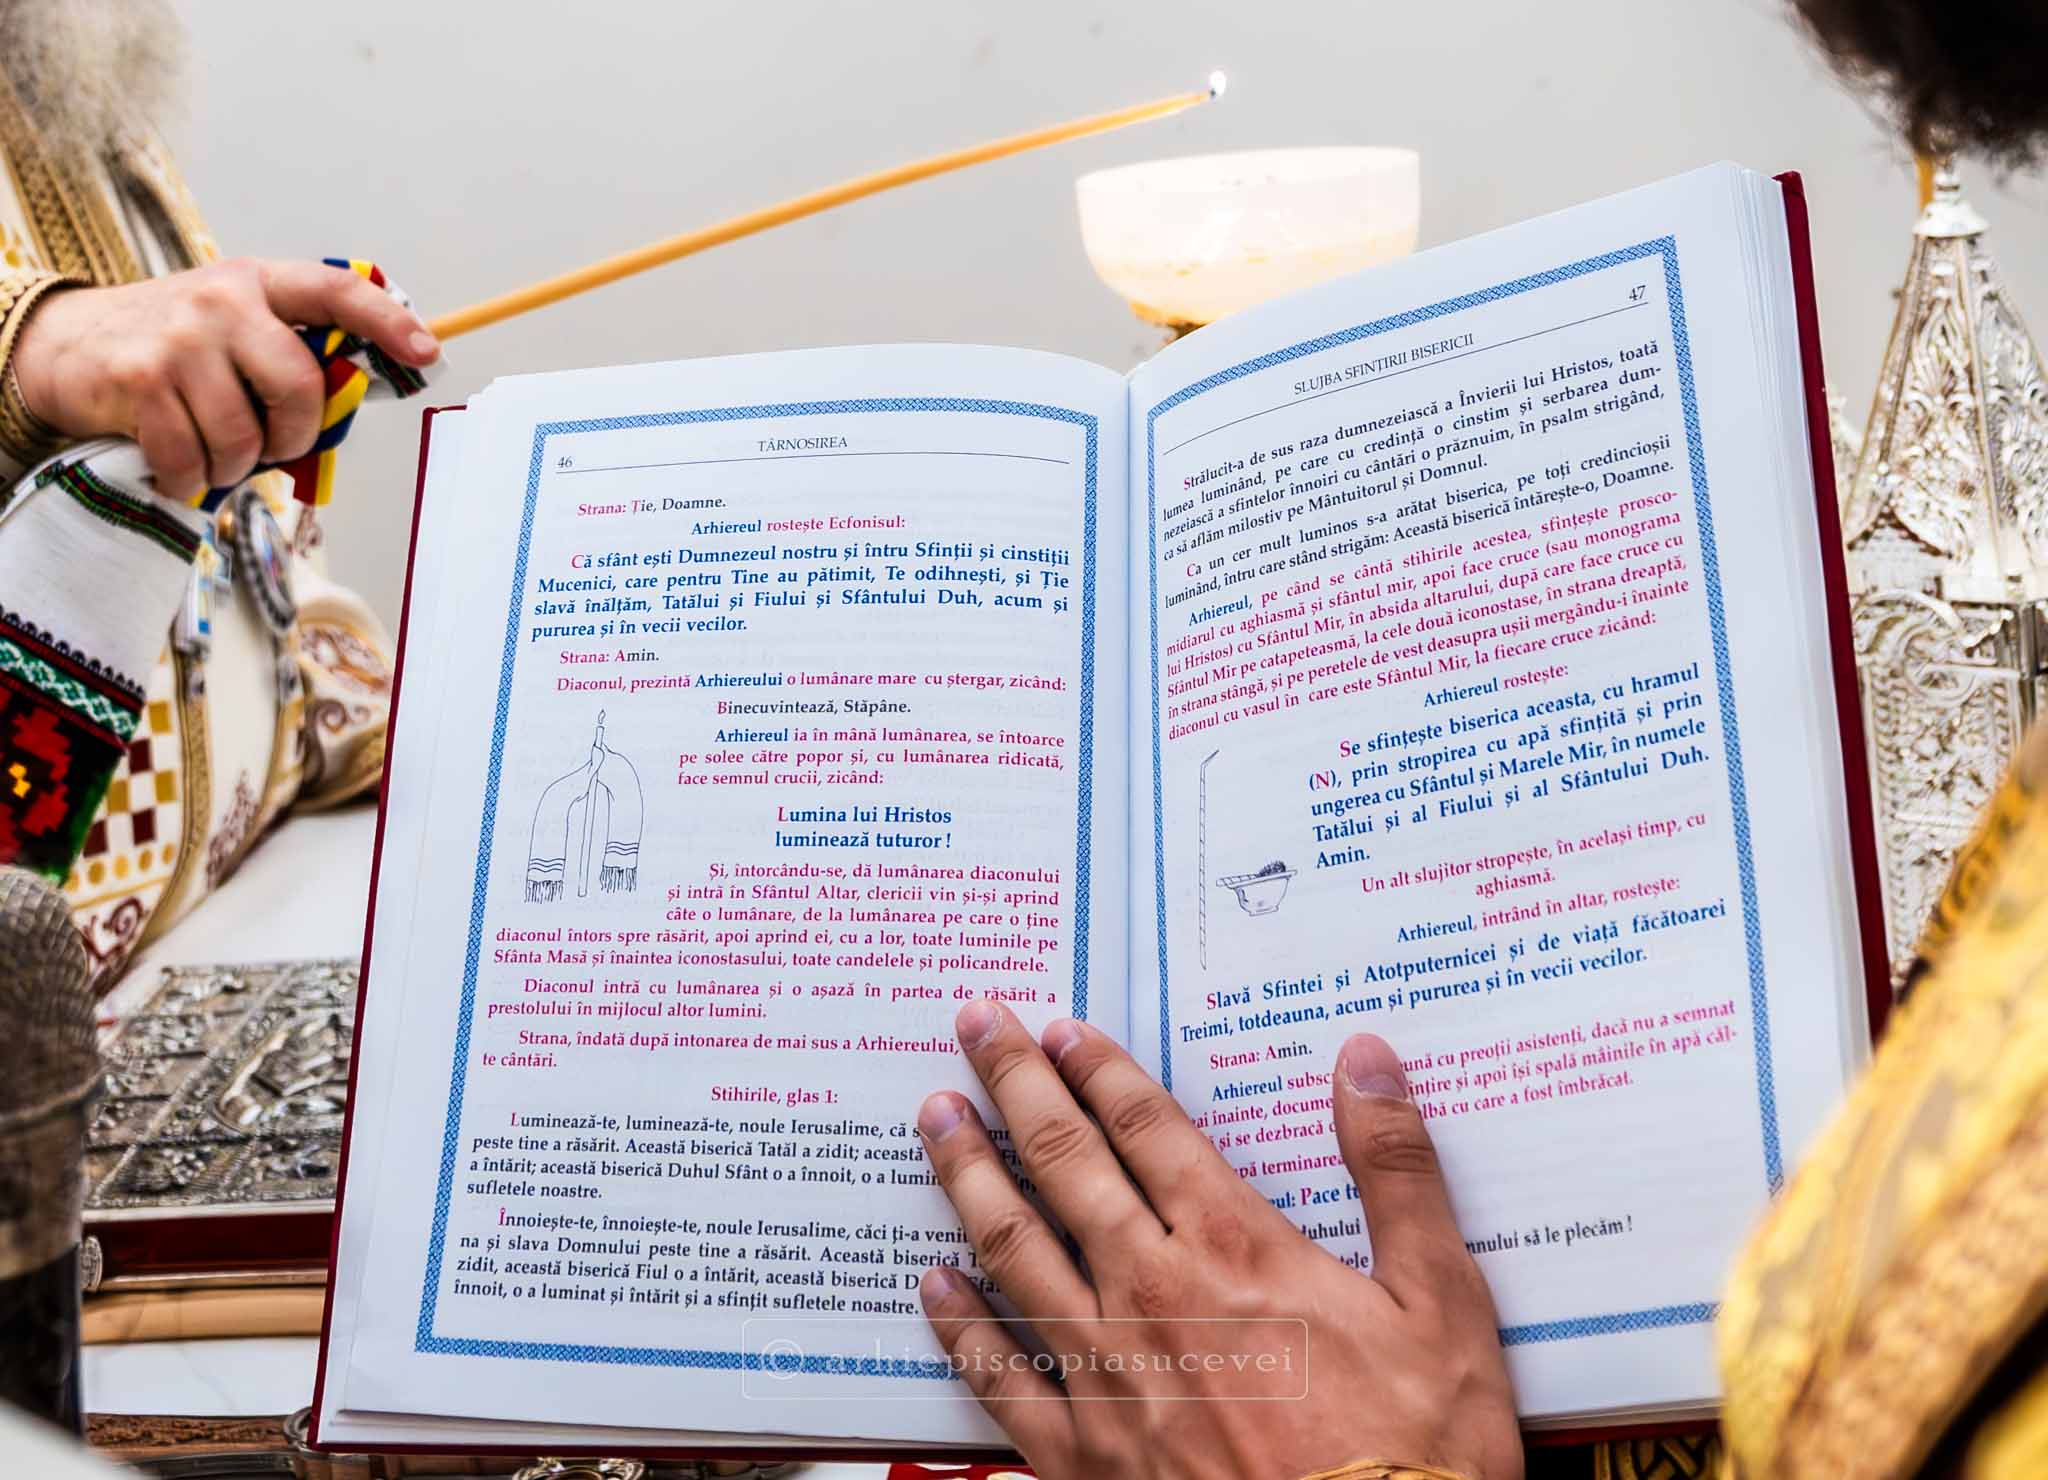 46
TÂRNOSIREA
Strana: Ție, Doamne.
Arhiereul rostește Ecfonisul:
Că sfânt ești Dumnezeul nostru și întru Sfinții și cinstiții
Mucenici, care pentru Tine au pătimit, Te odihnești, și Ție
slavă înălțăm, Tatălui și Fiului și Sfântului Duh, acum și
pururea și în vecii vecilor.
Strana: Amin.
Diaconul, prezintă Arhiereului o lumânare mare cu ștergar, zicând:
Binecuvintează, Stăpâne.
Arhiereul ia în mână lumânarea, se întoarce
pe solee către popor și, cu lumânarea ridicată,
face semnul crucii, zicând:
Lumina lui Hristos
luminează tuturor !
Și, întorcându-se, dă lumânarea diaconului
și intră în Sfântul Altar, clericii vin și-și aprind
câte o lumânare, de la lumânarea pe care o ține
diaconul întors spre răsărit, apoi aprind ei, cu a lor, toate luminile pe
Sfânta Masă și înaintea iconostasului, toate candelele și policandrele.
Diaconul intră cu lumânarea și o așază în partea de răsărit a
prestolului în mijlocul altor lumini.
Strana, îndată după intonarea de mai sus a Arhiereului,
te cântări.
Stihirile, glas 1:
Luminează-te, luminează-te, noule Ierusalime, că
peste tine a răsărit. Această biserică Tatăl a zidit; această
a întărit; această biserică Duhul Sfânt o a înnoit, o a
sufletele noastre.
Înnoiește-te, înnoiește-te, noule Ierusalime, căci ți-a
na și slava Domnului peste tine a răsărit. Această biserică
zidit, această biserică Fiul o a întărit, această biserică
înnoit, o a luminat și întărit și a sfințit sufletele noastre.
47
SLUJBA SFINȚIRII BISERICII
Strălucit-a de sus raza dumnezeiască a Învierii lui Hristos, toată
lumea luminând, pe care cu credință o cinstim și serbarea dum-
nezeiască a sfintelor înnoiri cu cântări o prăznuim, în psalm strigând,
ca să aflăm milostiv pe Mântuitorul și Domnul.
Ca un cer mult luminos s-a arătat biserica, pe toți credincioșii
luminând, întru care stând strigăm: Această biserică întărește-o, Doamne.
Arhiereul, pe când se cântă stihirile acestea, sfințește prosco-
midiarul cu aghiasmă și sfântul mir, apoi face cruce (sau monograma
lui Hristos) cu Sfântul Mir, în absida altarului, după care face cruce cu
Sfântul Mir pe catapeteasmă, la cele două iconostase, în strana dreaptă,
în strana stângă, și pe peretele de vest deasupra ușii mergându-i înainte
diaconul cu vasul în care este Sfântul Mir, la fiecare cruce zicând:
Arhiereul rostește:
Se sfințește biserica aceasta, cu hramul
(N), prin stropirea cu apă sfințită și prin
ungerea cu Sfântul și Marele Mir, în numele
Tatălui și al Fiului și al Sfântului Duh.
Amin.
Un alt slujitor stropește, în același timp, cu
aghiasmă.
Arhiereul, intrând în altar, rostește:
Slavă Sfintei și Atotputernicei și de viață făcătoarei
Treimi, totdeauna, acum și pururea și în vecii vecilor.
Strana: Amin.
Arhiereul cu preoții asistenți, dacă nu a semnat
înainte, și apoi își spală mâinile în apă căl-
și se dezbracă cu care a fost îmbrăcat.
terminarea
Pace
să le plecăm !
© arhiepiscopiasucevei